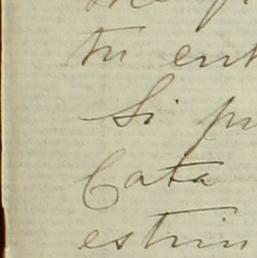 tu ent
Si pu
Cata
estrin